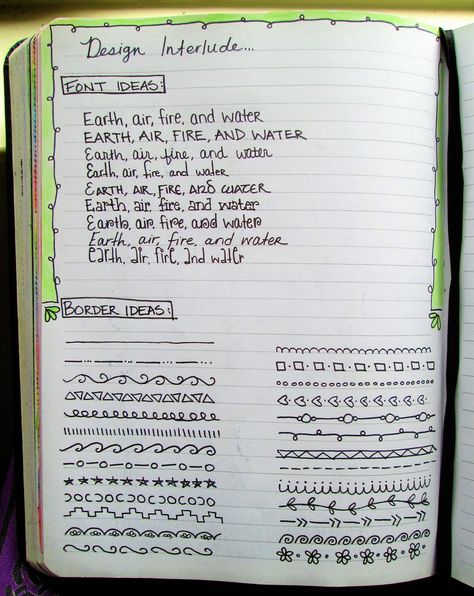 Design Interlude...
FONT IDEAS:
Earth, air, fire, and water
EARTH, AIR, FIRE, AND WATER
Earth, air, fire, and water
Earth, air, fire, and water
EARTH, AIR, FIRE, AND WATER
Earth, air, fire, and water
Earth, air, fire, and water
Earth, air, fire, and water
Earth, air, fire, and water
BORDER IDEAS: